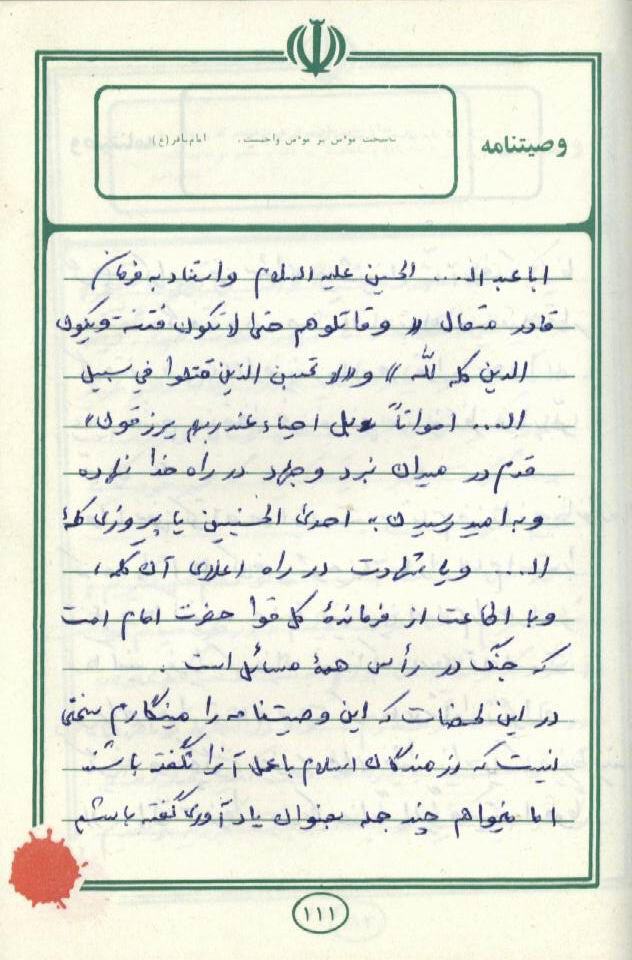 وصیتنامه
نصیحت مؤمن بر مؤمن واجبست . امام باقر (ع)
اباعبد الـ... الحسین علیه السلام و استناد به فرمان
قادر متعال « وقاتلوهم حتی لا تکون فتنه و یکون
الدین کله لله » و « لا تحسبن الذین قتلوا فی سبیل
الـ... امواتاً بل احیاء عند ربهم یرزقون »
قدم در میدان نبرد و جهاد در راه خدا نهاده
و به امید رسیدن به احدی الحسنیین یا پیروزی کلمۀ
الـ... و یا شهادت در راه اعلای آن کلمه ،
و با اطاعت از فرماندۀ کل قوا حضرت امام امت
که جنگ در رأس همۀ مسائل است .
در این لحضات که این وصیتنامه را مینگارم سخنی
نیست که رزمندگان اسلام با عمل آنرا نگفته باشند
اما میخواهم چند جمله بعنوان یادآوری گفته باشم
۱۱۱